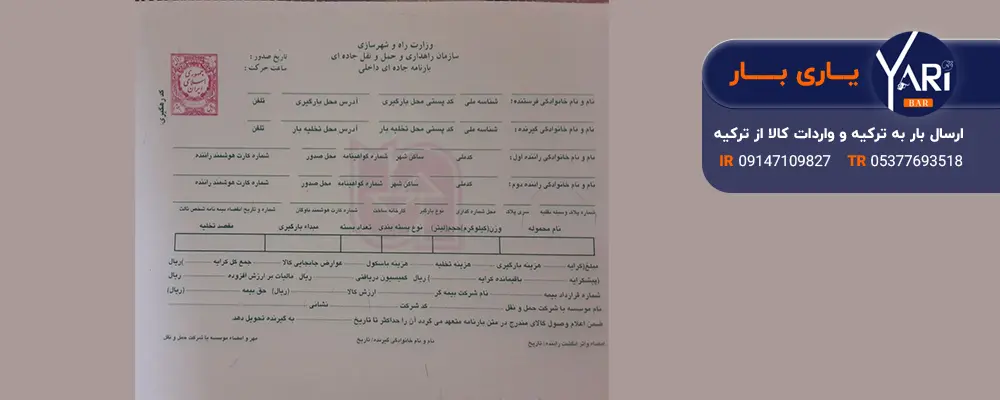 وزارت راه و شهرسازی
سازمان راهداری و حمل و نقل جاده ای
بارنامه جاده ای داخلی
تاریخ صدور :
ساعت حرکت :
جمهوری اسلامی ایران
کد رهگیری
نام و نام خانوادگی فرستنده : شناسه ملی کد پستی محل بارگیری آدرس محل بارگیری تلفن
نام و نام خانوادگی گیرنده : شناسه ملی کد پستی محل تخلیه بار آدرس محل تخلیه بار تلفن
نام و نام خانوادگی راننده اول : کدملی ساکن شهر شماره گواهینامه محل صدور شماره کارت هوشمند راننده
نام و نام خانوادگی راننده دوم : کدملی ساکن شهر شماره گواهینامه محل صدور شماره کارت هوشمند راننده
شماره پلاک وسیله نقلیه سری پلاک محل شماره گذاری نوع بارگیر کارخانه ساخت شماره کارت هوشمند ناوگان شماره و تاریخ انقضاء بیمه نامه شخص ثالث
نام محموله وزن(کیلوگرم)حجم(لیتر) نوع بسته بندی تعداد بسته مبداء بارگیری مقصد تخلیه
مبلغ(کرایه هزینه بارگیری هزینه تخلیه هزینه باسکول عوارض جابجایی کالا جمع کل کرایه )ریال
(پیشکرایه باقیمانده کرایه )ریال کمیسیون دریافتی ریال مالیات بر ارزش افزوده ریال
شماره قرارداد بیمه نام شرکت بیمه گر ارزش کالا (ریال) حق بیمه (ریال)
نام موسسه یا شرکت حمل و نقل کد شرکت نشانی
ضمن اعلام وصول کالای مندرج در متن بارنامه متعهد می گردد آن را حداکثر تا تاریخ به گیرنده تحویل دهد
امضاء واثر انگشت راننده/ تاریخ نام و نام خانوادگی گیرنده/ تاریخ مهر و امضاء موسسه یا شرکت حمل و نقل
یاری بار
YARI
BAR
ارسال بار به ترکیه و واردات کالا از ترکیه
IR 09147109827 TR 05377693518